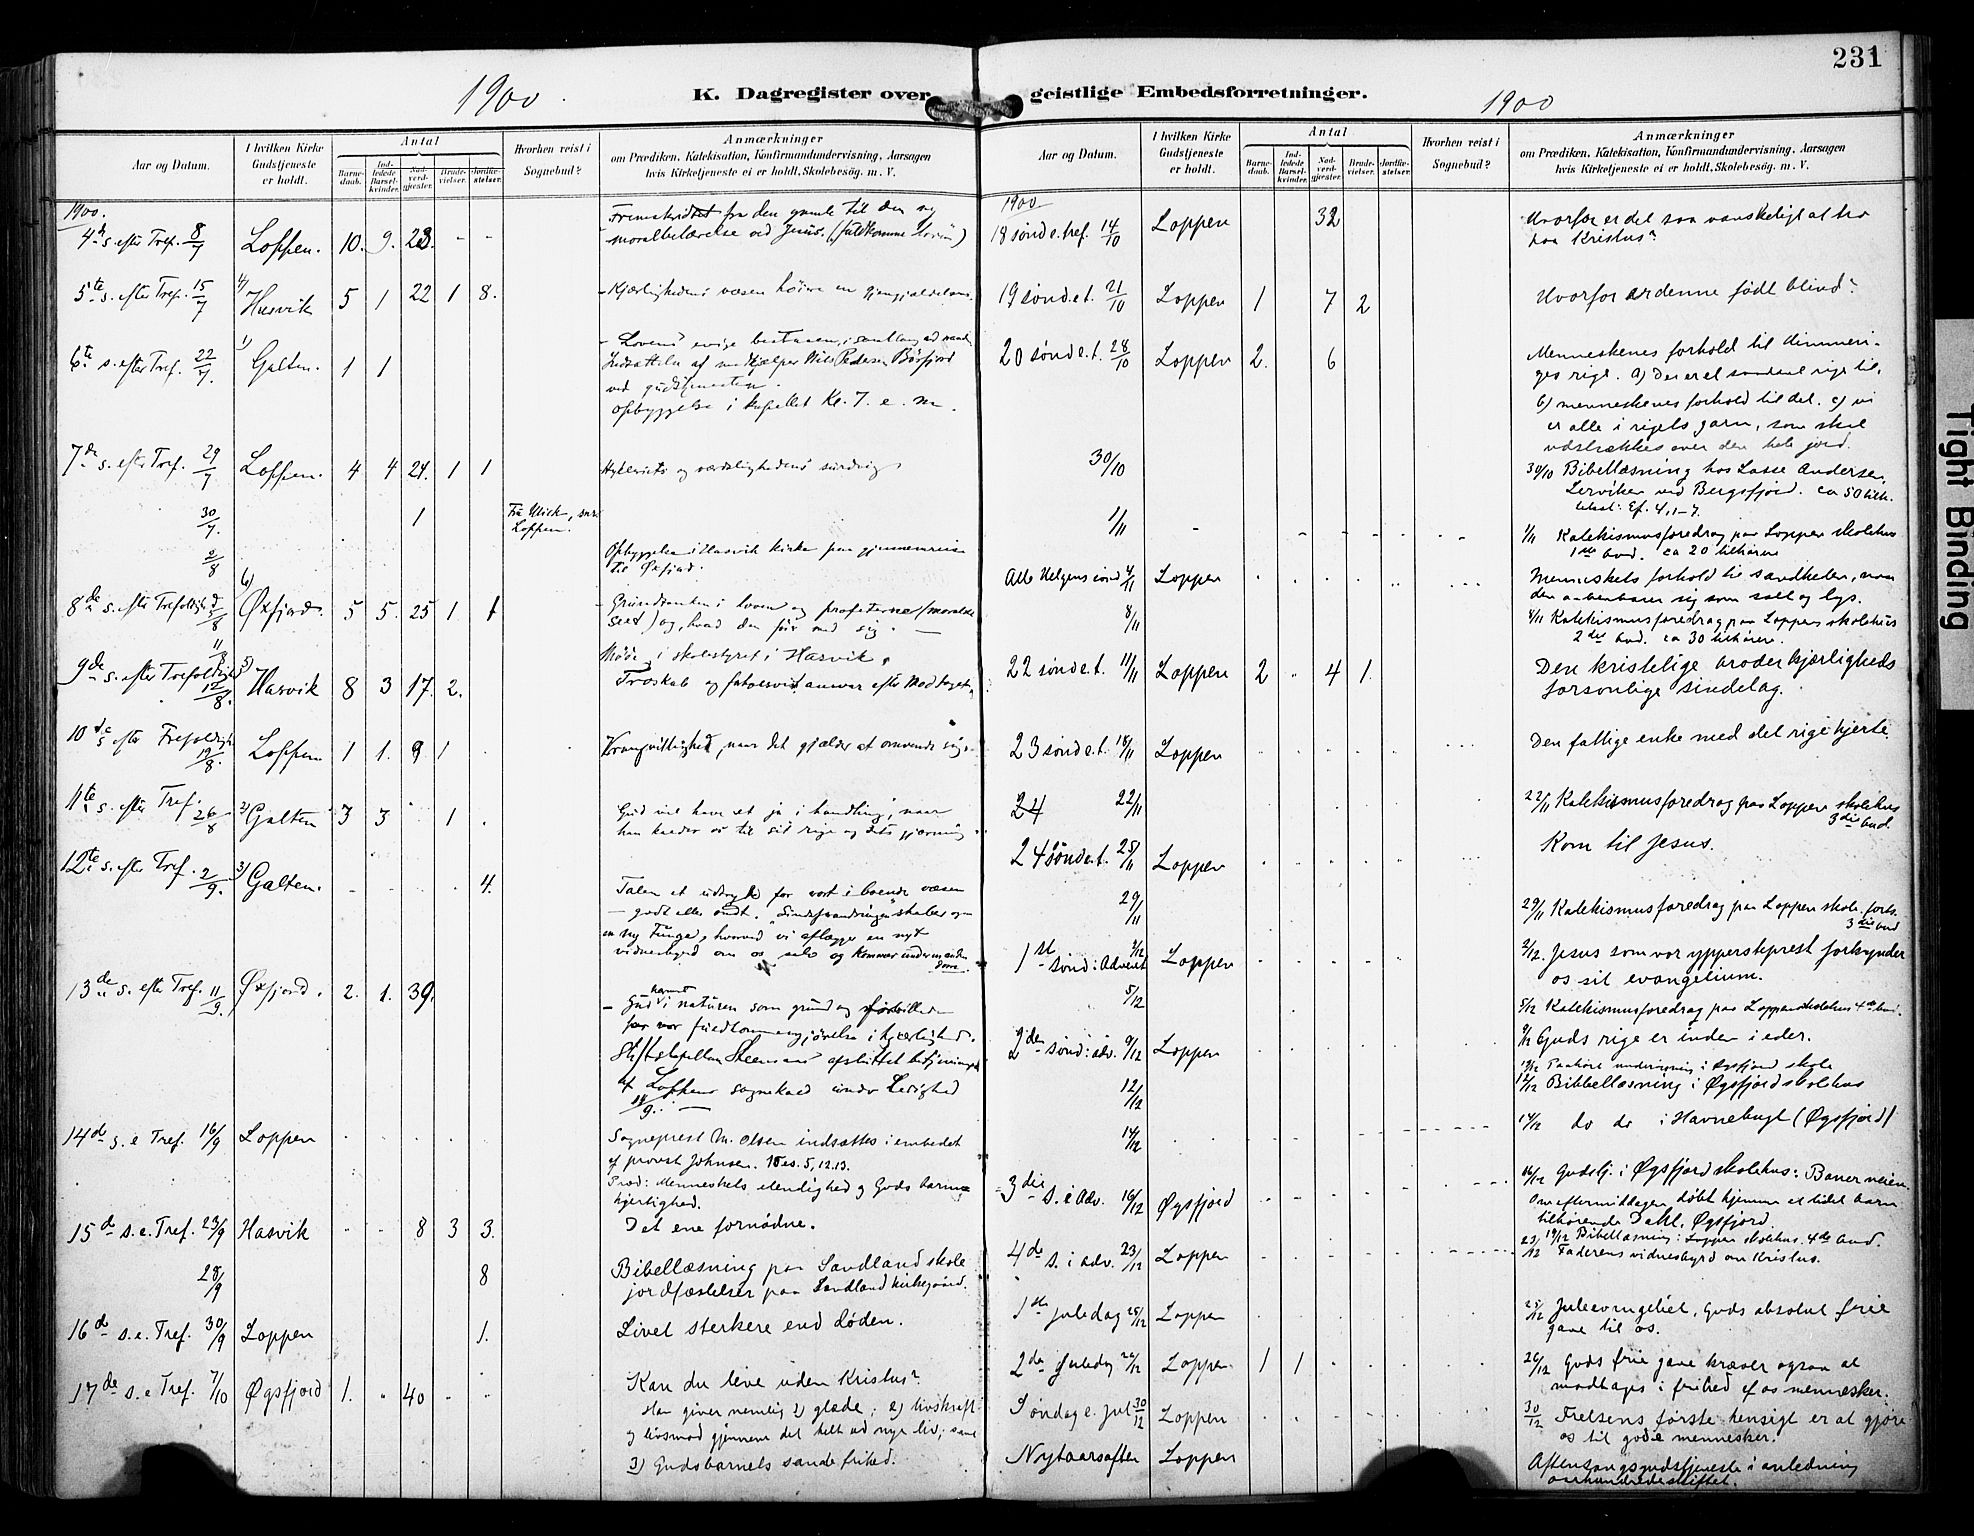 231
1900
K. Dagregister over
geistlige Embedsforretninger.
1900
Aar og Datum.
I hvilken Kirke Gudstjeneste er holdt.
Antal
Barnedaab.
Indledede Barselkvinder.
Nadverdgjester.
Brudevielser.
Jordfæstelser.
Hvorhen reist i Sognebud?
Anmærkninger
om Prædiken, Katekisation, Konfirmandundervisning, Aarsagen
hvis Kirketjeneste ei er holdt, Skolebesøg. m. V.
1900.
4de s. efter Tref. 8/7 Loppen. 10. 9. 23. - -
Fremskridtet fra den gamle til den ny
moralbelærelse ved Jesus.
5te s. efter Tref. 15/7 Hasvik 5 1 22 1 8.
- Kjærlighedens væsen høiere en
6te s. efter Tref. 22/7. Galten. 1 1
- Lovens evige bestaaen,
Indsættelse af medhjælper Nils Pedersen Børfjord
ved gudstjenesten.
Opbyggelse i kapellet Kl. 7. e. m.
7de s. efter Tref. 29/7 Loppen. 4 4 24. 1 1
30/7. 1
Loppen.
2/8
Opbyggelse i Hasvik kirke paa gjennemreise
til Øxfjord.
8de s. efter Trefoldigh. 5/8 6) Øxfjord. 5 5. 25 1 1
- Grundtanken i loven og profeterne
og, hvad den fører med sig. —
11/8
Møde i skolestyret i Hasvik.
9de s. efter Trefoldigh. 12/8. 5) Hasvik 8 3 17. 2.
Troskab og ansvar efter
10de s. efter Trefoldigh. 19/8. Loppen 1 1. 9 1 .
Vrangvillighed, naar det gjælder at omvende sig.
11te s. efter Tref. 26/8 2) Galten 3 3 1 .
Gud vil have et ja i handling, naar
han kalder os til sit rige og dets gjerning.
12te s. efter Tref. 2/9. 3) Galten. - - . 4.
Talen et udtryk for vort iboende væsen
— godt eller ondt.
en ny Tunge, hvorved vi aflægge en nyt
vidnesbyrd om os selv og kommer under en anden
Dom.
13de s. efter Tref. 11/9. Øxfjord. 2. 1. 39.
- Gud i naturen som grund og
for vor fuldkommengjørelse i kjærlighed.
afsluttet betjeningen
af Loppens sognekald under Ledighed
11/9. —
14de s. e Tref. 16/9 Loppen
Sogneprest M. Olsen indsættes i embedet
af provst Johnsen. 1Tes. 5, 12.13.
Præd: Menneskets elendighed og Guds barm-
hjertighed.
15de s. e. Tref. 23/9 Hasvik - - 8 3 3.
Det ene fornødne.
28/9 8
Bibellæsning paa Sandland skole
jordfæstelser paa Sandland kirkegaard.
16de s. e. Tref. 30/9 Loppen 1.
Livet sterkere end døden.
17de s. e Tref. 7/10 Øgsfjord 1. " 40 - -
Kan du leve uden Kristus?
Han giver nemlig 1) glæde; 2) livskraft
og livsmod gjennem det helt ud nye liv; samt
3) Gudsbarnets sande frihed.
Aar og Datum.
I hvilken Kirke Gudstjeneste er holdt.
Antal
Barnedaab.
Indledede Barselkvinder.
Nadverdgjester.
Brudevielser.
Jordfæstelser.
Hvorhen reist i Sognebud?
Anmærkninger
om Prædiken, Katekisation, Konfirmandundervisning, Aarsagen
hvis Kirketjeneste ei er holdt, Skolebesøg. m. V.
1900
18 sønd e. tref. 14/10 Loppen 32
Hvorfor er det saa vanskeligt at tro
paa Kristus?
19 sønd. e t. 21/10 Loppen 1 7 2
Hvorfor er denne født blind?
20 sønd e. t. 28/10 Loppen 2. 6
Menneskenes forhold til himmeri-
ges rige. a) Der er et saadant rige til,
b) menneskenes forhold til det. c) vi
er alle i rigets garn, som skal
udstrækkes over den hele jord.
30/10
30/10 Bibellæsning hos Lasse Andersen,
Lerviken ved Bergsfjord. ca 50 tilh.
tekst: Ef. 4, 1-7.
1/11
1/11 Katekismusforedrag paa Loppen skolehus
1ste bud. ca 20 tilhørere
Alle Helgens sønd 4/11 Loppen
Menneskets forhold til sandheden, naar
den aabenbarer sig som salt og lys.
8/11
8/11 Katekismusforedrag paa Loppens skolehus
2det bud. ca 30 tilhørere.
22 sønd e. t. 11/11 Loppen 2 " 4 1.
Den kristelige broderkjærligheds
forsonlige sindelag.
23 sønd e. t. 18/11 Loppen
Den fattige enke med det rige hjerte.
24 22/11
22/11 Katekismusforedrag paa Loppen skolehus
3die bud.
24 sønd e. t. 25/11 Loppen
Kom til Jesus.
29/11
29/11 Katekismusforedrag paa Loppen skole. forts.
3die bud
1ste sønd i Advent 2/12 Loppen
2/12. Jesus som vor ypperstepræst forkynder
os sit evangelium.
5/12
5/12 Katekismusforedrag paa Loppen skolehus 4de bud.
2den sønd i adv. 9/12 Loppen
9/12 Guds rige er inden i eder.
12/12 Paahørt undervisning i Øgsfjord skole
12/12
12/12 Bibellæsning i Øgsfjord skolehus
14/12
14/12 do do i Havnebugt (Øgsfjord)
3die s. i Adv. 16/12 Øgsfjord
16/12 Gudstj. i Øgsfjord skolehus: Baner veien.
Om eftermiddagen døbt hjemme et lidet barn
tilhørende Dahl, Øgsfjord.
19/12 Bibellæsning: Loppen skolehus. 4de bud.
4de s. i adv. 23/12 Loppen
23/12 Faderens vidnesbyrd om Kristus.
1ste juledag 25/12 Loppen
25/12 Juleevangeliet, Guds absolut frie
gave til os.
2den Juledag 26/12 Loppen 1 1
26/12 Guds frie gave kræver ogsaa at
modtages i frihed af os mennesker.
Søndag e. jul 30/12 Loppen
30/12 Frelsens første hensigt er at gjøre
os til gode mennesker.
Nytaarsaften Loppen
Aftensangsgudstjeneste i anledning
aarhundredeskiftet.
Tight Binding